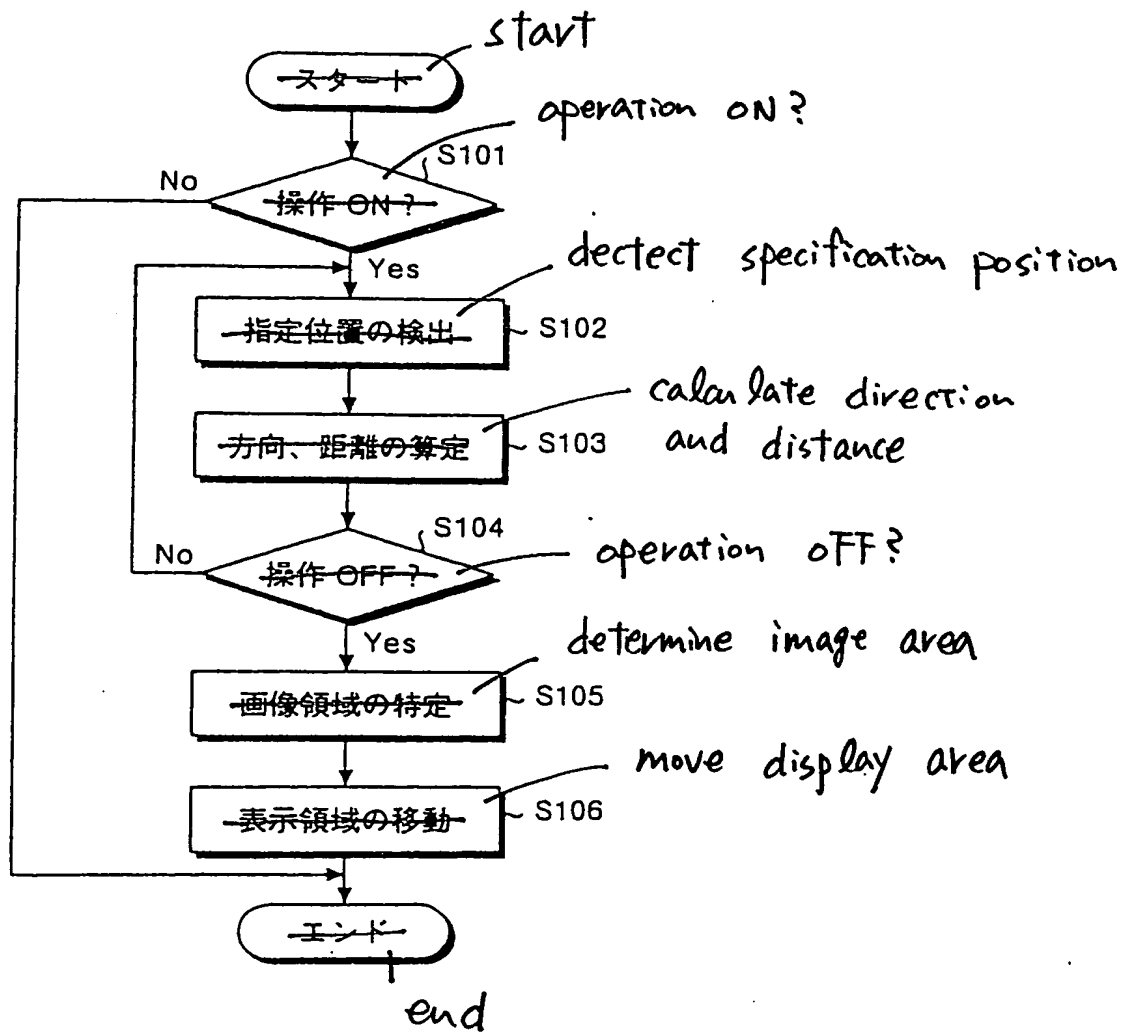 start
スタート
operation ON?
S101
No
操作 ON ?
Yes
dectect specification position
指定位置の検出
S102
calculate direction
and distance
方向、距離の算定
S103
S104
No
操作 OFF ?
operation OFF?
Yes
determine image area
画像領域の特定
S105
move display area
表示領域の移動
S106
エンド
end